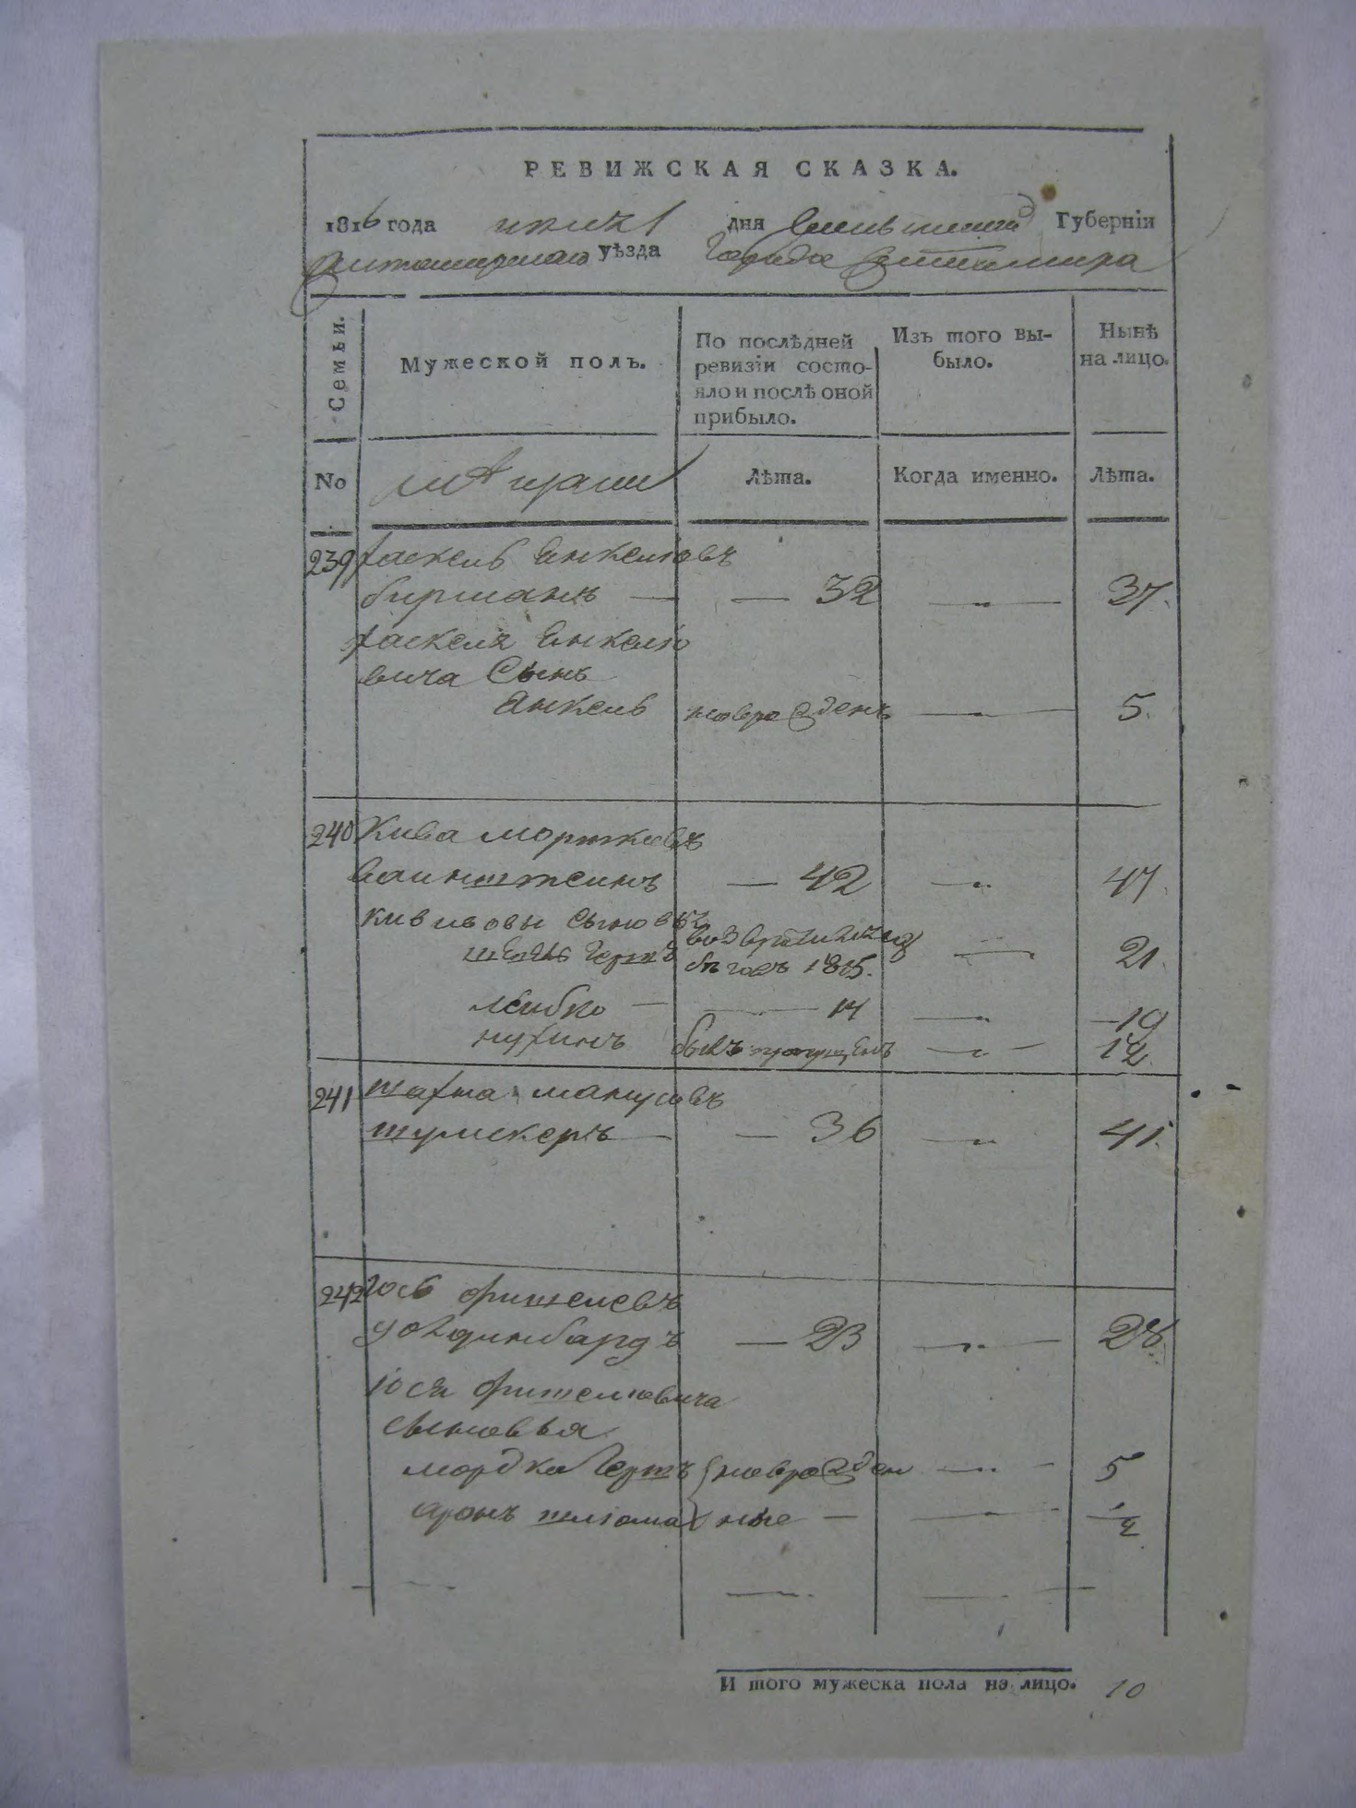 РЕВИЖСКАЯ СКАЗКА.
1816 года июня 1 дня Волынской Губернїи
Житомирскаго уѣзда Города Житомира
Семьи. Мужеской полъ. По послѣдней ревизїи состояло и послѣ оной прибыло. Изъ того выбыло. Нынѣ на лицо.
No мѣщане Лѣта. Когда именно. Лѣта.
239 Хаскель Енкелювъ
бирманъ — — 32 — 37.
Хаскеля Енкелю
вича Сынъ
Янкель новорожденъ — 5.
240 Кива мортковъ
ваинштеинъ — 42 — 47.
кививовы сыновья
Герш возвратился
въ годъ 1815. — 21.
леибко — — 14 — 19
нухимъ былъ пропущенъ — 12.
241 шахна манусовъ
шумскеръ — — 36 — 41.
242 Иось фишелевъ
— 23 — 28.
Iося фишелювича
сыновья
мордко Герш новорожден — 5
аронъ шлиома ные — — ½
И того мужеска пола на лицо. 10